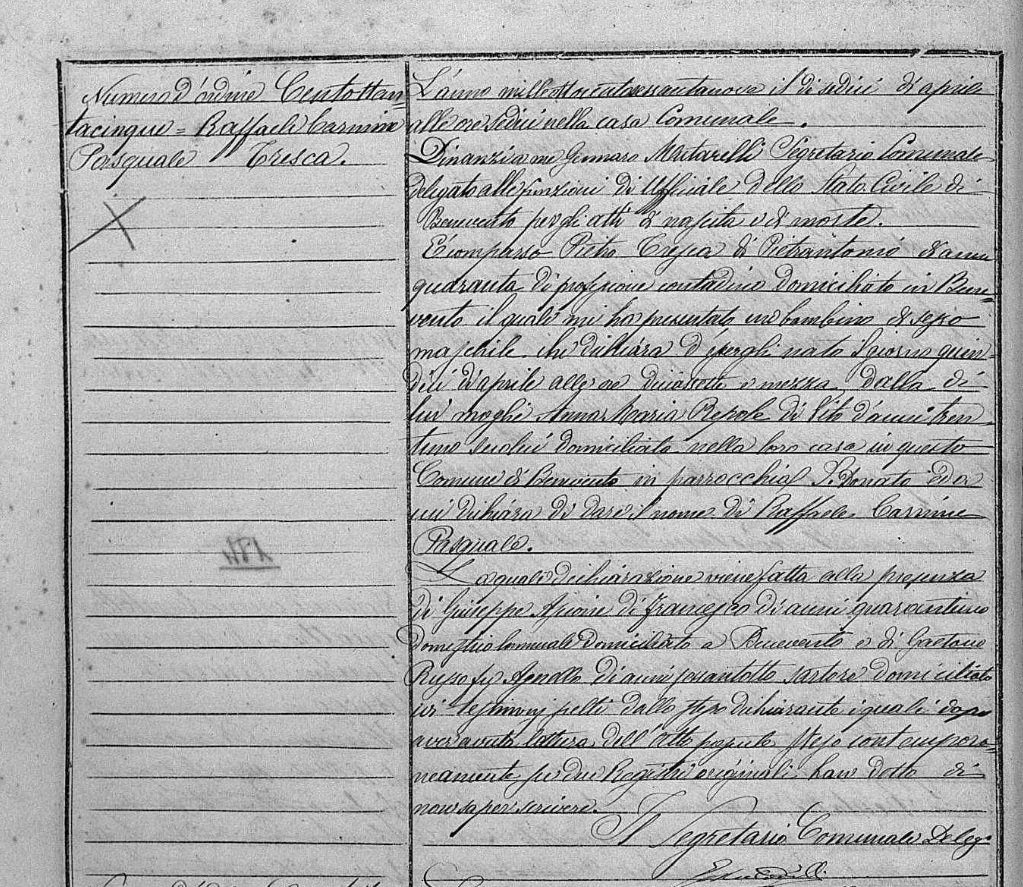 Numero d'ordine Centottan=
tacinque = Raffaele Carmine
Pasquale Tresca.
L'anno milleottocentosessantanove il dì sedici di aprile
alle ore sedici nella casa Comunale.
Dinanzi a me Gennaro Segretario Comunale
delegato alle funzioni di Uffiziale dello Stato Civile di
Benevento per gli atti di nascita e di morte.
È comparso Pietro Tresca di Pietrantonio d'anni
quaranta di professione contadino domiciliato in Bene=
vento il quale mi ha presentato un bambino di sesso
maschile che dichiara d'essergli nato il giorno quin=
dici d'aprile alle ore diciotto e mezza dalla di
lui moglie Anna Maria Repole di Vito d'anni tren=
tuno domiciliata nella loro casa in questo
Comune di Benevento in parrocchia S. Donato ed a
cui dichiara di dare il nome di Raffaele Carmine
Pasquale.
La quale dichiarazione viene fatta alla presenza
di Giuseppe di Francesco di anni quarantuno
domestico Comunale domiciliato a Benevento e di Gaetano
Russo fu Agnello di anni sessantotto sartore domiciliato
ivi testimonj scelti dallo stesso dichiarante i quali dopo
aver avuta lettura dell'atto stesso contempora=
neamente su due Registri originali han detto di
non saper scrivere.
Il Segretario Comunale Deleg.